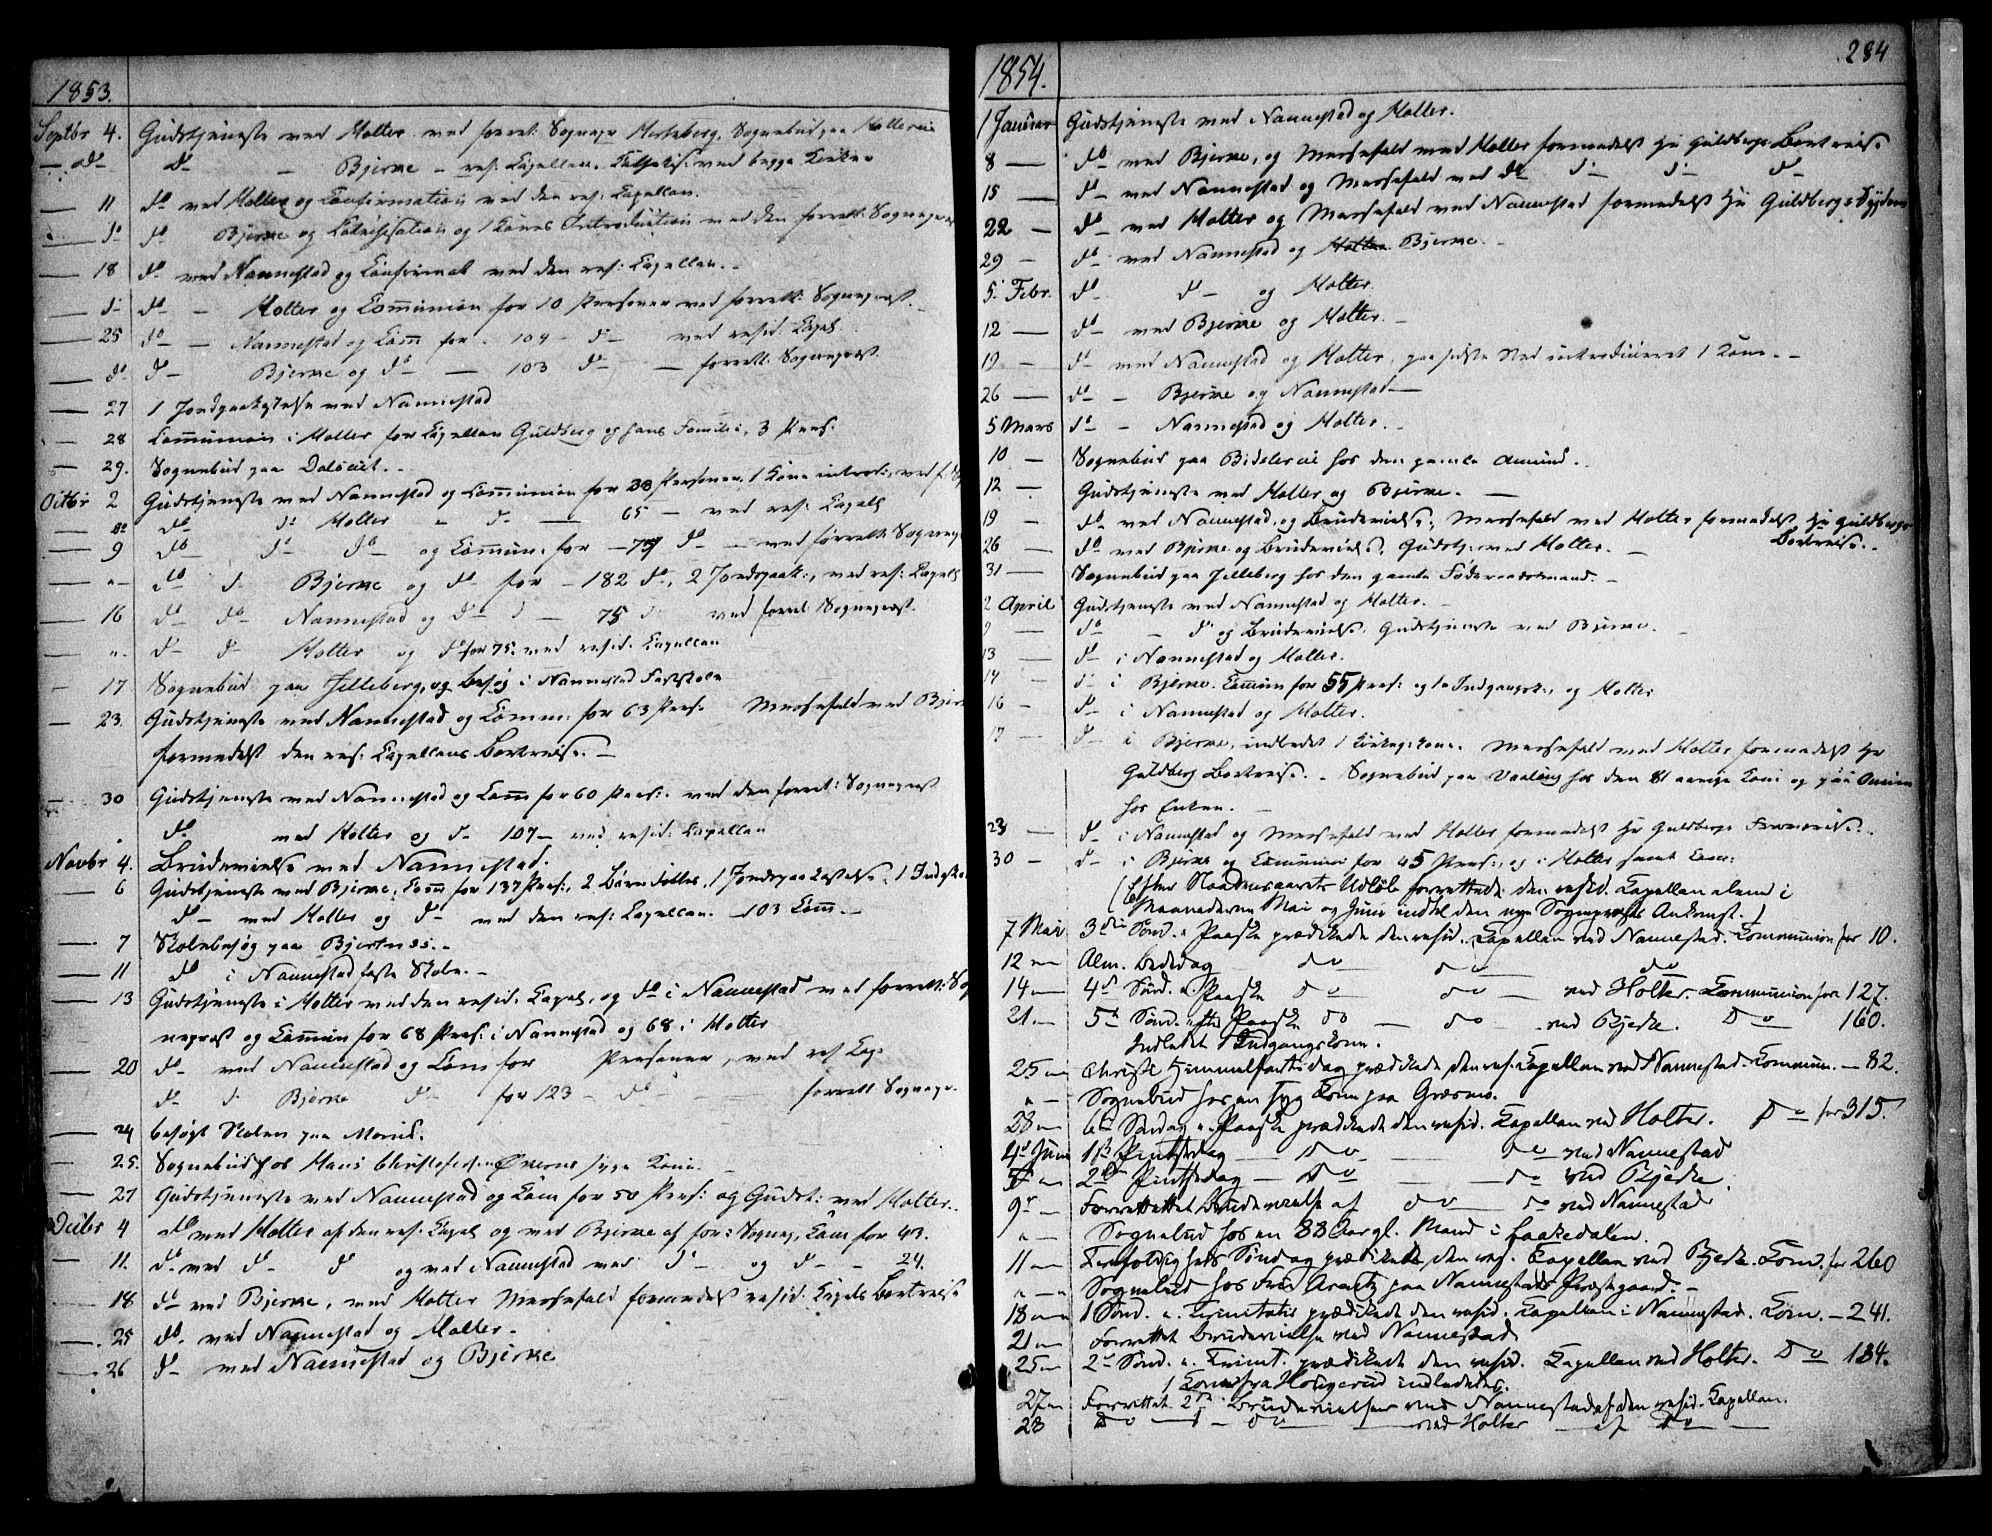 1853.
Septbr 4. Gudstjeneste ved Holter ved forret: Sognepr: Sognebud paa
— do do — Bjerke — res: Capellan. ved begge Kirker
— 11 do ved Holter og Confirmation ved den res: Capellan.
— do do Bjerke og Catechisation og 1 Kones Introduction ved den forrett: Sognepræst
— 18 do ved Nannestad og Confirmat ved den res: Capellan. —
— do do — Holter og Communion for 10 Personer ved forrett: Sognepræst.
— 25 do — Nannestad og Com̄ for 109 do — ved resid: Capel.
— do do — Bjerke og do — 103 do — forrett: Sognepræst.
— 27 1 Jordpaakastelse ved Nannestad
— 28 Communion i Holter for Capellan Guldberg og hans Familie, 3 Pers:
— 29. Sognebud paa
Octbr 2 Gudstjeneste ved Nannestad og Communion for 38 Personer. 1 Kone introd:, ved
— do do Holter — do — 65 — ved res: Capel:
— 9 do do do og Commun: for — 79 do — ved forrett: Sognepr
— " — do do Bjerke og do for — 182 do, 2 Jordpaak:, ved res: Capel
— 16 do do Nannestad og do — 75 do ved forret: Sognepræst.
— ". do do Holter og do for 75. ved resid: Capellan
— 17 Sognebud paa Jelleberg, og besøg i Nannestad Fastskole
— 23. Gudstjeneste ved Nannestad og Comm: for 63 Pers: Messefald ved Bjerke
formedelst den res: Capellans Bortreise. —
— 30 Gudstjeneste ved Nannestad og Com̄ for 60 Pers: ved den forret: Sognepræst
do ved Holter og do 107 — ved resid: Capellan
Novbr 4. Brudevielse ved Nannestad.
— 6 Gudstjeneste ved Bjerke, Com̄ for 137 Pers:, 2 Børn døbte, 1 Jordpaakastelse, 1
do — ved Holter og do — ved den res: Capellan. 103 Com̄. —
— 7 Skolebesøg paa Bjertnes. —
— 11 do i Nannestad faste Skole. —
— 13 Gudstjeneste i Holter ved den resid. Capel, og do i Nannestad ved forrett: Sog
nepræst og Com̄un for 68 Pers: i Nannestad og 68 i Holter
— 20 do — ved Nannestad og Com̄ for Personer, ved res Cap.
do do Bjerke do — for 123 — do — forrett: Sognepr.
— 24 besøgt Skolen paa
— 25. Sognebud hos Hans Christophersen syge Kone. —
— 27 Gudstjeneste ved Nannestad og Com̄ for 50 Pers: og Gudst: ved Holter.
Decbr 4 do ved Holter af den res: Capel og ved Bjerke af for: Sognep, Com̄ for 43.
— 11. do ved do — do og ved Nannestad ved do — og do — 24.
— 18 do ved Bjerke, ved Holter Messefald formedelst resid: Capels Bortreise
— 25 do. ved Nannestad og Holter.
— 26 do — ved Nannestad og Bjerke
284
1854.
1 Januar Gudstjeneste ved Nannestad og Holter.
8 — do ved Bjerke, og Messefald ved Holter formedelst Hr Guldbergs Bortreise
15 — do — ved Nannestad og Messefald ved do do — do — do
22 — do — ved Holter og Messefald ved Nannestad formedelst Hr Guldbergs Sygdom
29 — do ved Nannestad og Holter Bjerke. —
5 Febr. do — do — og Holter.
12 — do — ved Bjerke og Holter. —
19 — do — ved Nannestad og Holter, paa sidste Sted introduceret 1 Kone. —
26 — do — — Bjerke og Nannestad —
5 Marts do — — Nannestad og Holter. —
10 — Sognebud paa hos den gamle Amund.
12 — Gudstjeneste ved Holter og Bjerke. —
19 — do ved Nannestad, og Brudevielse, Messefald ved Holter formedelst Hr Guldbergs
Bortreise. —
26 — do ved Bjerke og Brudevielse, Gudstj: ved Holter. —
31 — Sognebud paa Jelleberg hos den gamle Føderaadsmand. —
2 April Gudstjeneste ved Nannestad og Holter. —
9 — do — do og Brudevielse. Gudstjeneste ved Bjerke. —
13 — do i Nannestad og Holter.
14 — do i Bjerke. Com̄un for 55 Pers: og 1 Indgangsk:, og Holter
16 — do — i Nannestad og Holter.
17 — do — i Bjerke, indledet 1 Kirkegkone. Messefald ved Holter formedelst Hr
Guldberg Bortreise. — Sognebud paa hos den 81 aarige Kone og paa
hos Enken. —
23 — do — i Nannestad og Messefald ved Holter formedelst Hr Guldbergs
30 — do — i Bjerke og Communion for 45 Pers:, og i Holter samt Com:
(Efter Naadensaarets Udløb forrettede den resid. Capellan alene i
Maanederne Mai og Juni indtil den nye Sognepræsts Ankomst.)
7 Mai 3die Sønd. e. Paaske prædikede den resid. Capellan ved Nannestad. Communion for 10.
12 — Alm. Bededag — do — do — do
14 — 4de Sønd. e. Paaske do — do — ved Holter. Communion for 127.
21. — 5te Sønd. efter Paaske do — do ved Bjerke. Do 160.
Indledet 1 Indgangskone.
25 — Christi Himmelfartsdag prædikede den res. Capellan ved Nannestad. Commun. — 82.
" — Sognebud hos en syg Kone paa
28 — 6te Søndag e. Paaske prædikede den resid. Capellan ved Holter. Do for 315.
4de Juni 1ste Pintsedag — Do — do ved Nannestad
5te — 2den Pintsedag — Do — do ved Bjerke.
9de — Forrettet Brudevielse af do — do ved Nannestad
" — Sognebud hos en 88 Aargl. Mand i
11 — Trefoldigheds Søndag prædikede den res. Capellan ved Bjerke. Com. for 260
" — " Sognebud hos Fru paa Nannestads Præstegaard. —
18 — 1 Sønd. e. Trinitatis prædikede den resid. Capellan i Nannestad. Com. — 241.
21 — Forrettet Brudevielse ved Nannestad
25 — 2de Sønd. e. Trinit. prædikede den resid. Capellan ved Holter. Do 184.
1 Kone fra indledes.
27 — Forrettet 2de Brudevielser ved Nannestad af den resid. Capellan.
28 Do — 1 — do — ved Holter — af Do —